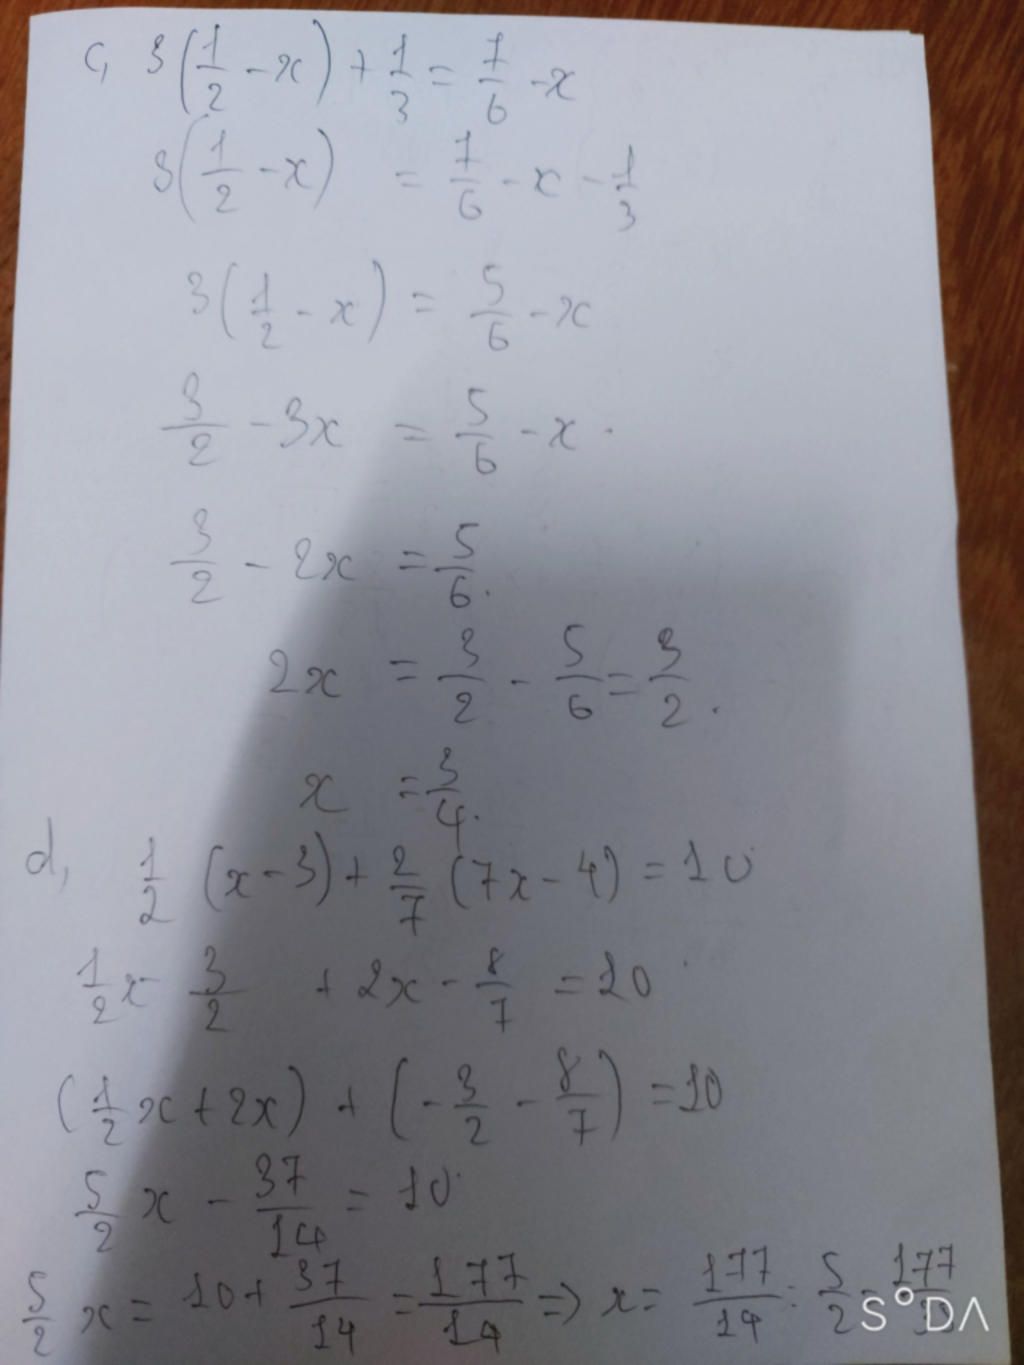 c, 3(1/2 - x) + 1/3 = 7/6 - x
3(1/2 - x) = 7/6 - x - 1/3
3(1/2 - x) = 5/6 - x
3/2 - 3x = 5/6 - x.
3/2 - 2x = 5/6.
2x = 3/2 - 5/6 = 3/2.
x = 3/4.
d, 1/2 (x - 3) + 2/7 (7x - 4) = 10
1/2 x - 3/2 + 2x - 8/7 = 10
(1/2 x + 2x) + (-3/2 - 8/7) = 10
5/2 x - 37/14 = 10
5/2 x = 10 + 37/14 = 177/14 => x = 177/14 : 5/2 = 177/35
SODA